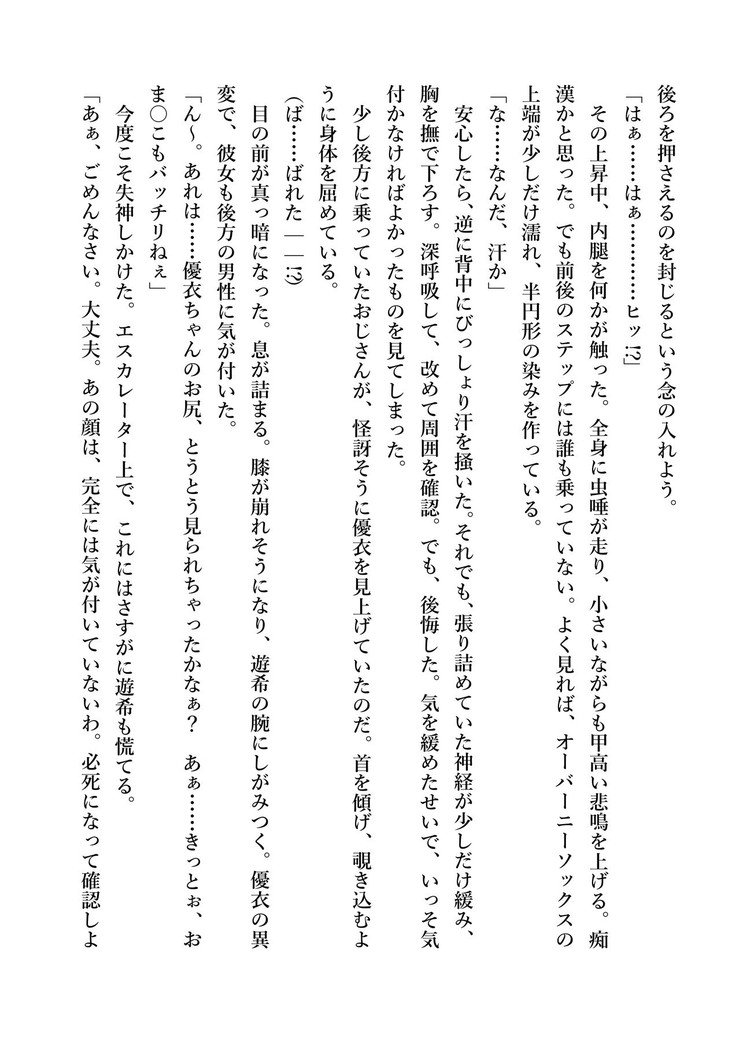 後ろを押さえるのを封じるという念の入れよう。
「はぁ……はぁ…………ヒッ!?」
　その上昇中、内腿を何かが触った。全身に虫唾が走り、小さいながらも甲高い悲鳴を上げる。痴
漢かと思った。でも前後のステップには誰も乗っていない。よく見れば、オーバーニーソックスの
上端が少しだけ濡れ、半円形の染みを作っている。
「な……なんだ、汗か」
　安心したら、逆に背中にびっしょり汗を掻いた。それでも、張り詰めていた神経が少しだけ緩み、
胸を撫で下ろす。深呼吸して、改めて周囲を確認。でも、後悔した。気を緩めたせいで、いっそ気
付かなければよかったものを見てしまった。
　少し後方に乗っていたおじさんが、怪訝そうに優衣を見上げていたのだ。首を傾げ、覗き込むよ
うに身体を屈めている。
(ば……ばれた――!?)
　目の前が真っ暗になった。息が詰まる。膝が崩れそうになり、遊希の腕にしがみつく。優衣の異
変で、彼女も後方の男性に気が付いた。
「ん～。あれは……優衣ちゃんのお尻、とうとう見られちゃったかなぁ？　あぁ……きっとぉ、お
ま〇こもバッチリねぇ」
　今度こそ失神しかけた。エスカレーター上で、これにはさすがに遊希も慌てる。
「あぁ、ごめんなさい。大丈夫。あの顔は、完全には気が付いていないわ。必死になって確認しよ